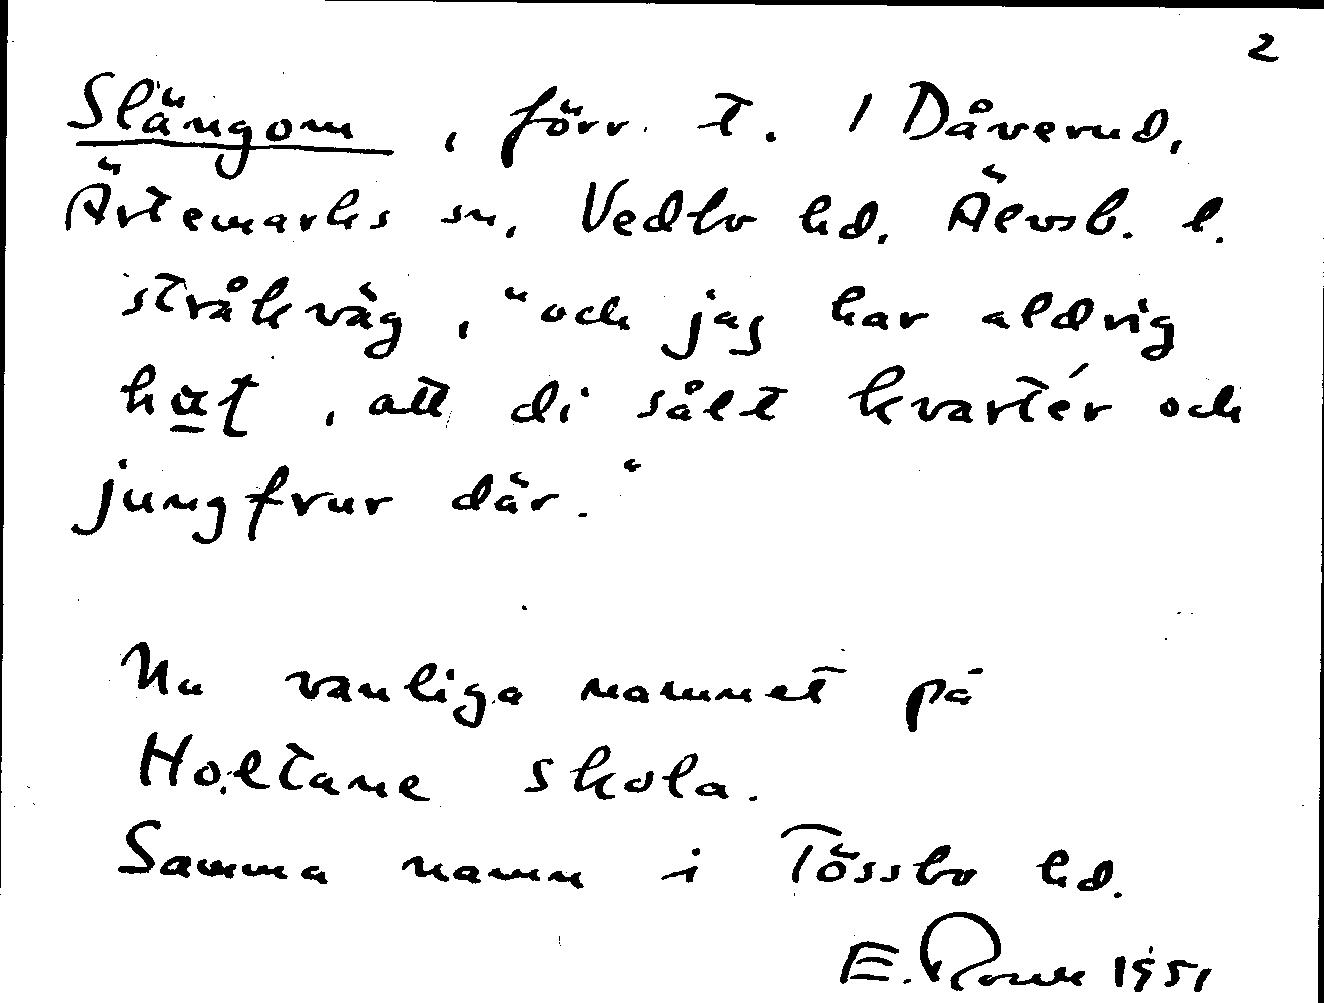 2
Slängom, förr t. 1 Dåverud,
Ärtemarks sn, Vedbo hd. Älvsb. l.
stråkväg, "och jag har aldrig
hat, att di sålt kvartér och
jungfrur där."
Nu vanliga namnet på
Holtane skola.
Samma namn i Tössbo hd.
E. 1951